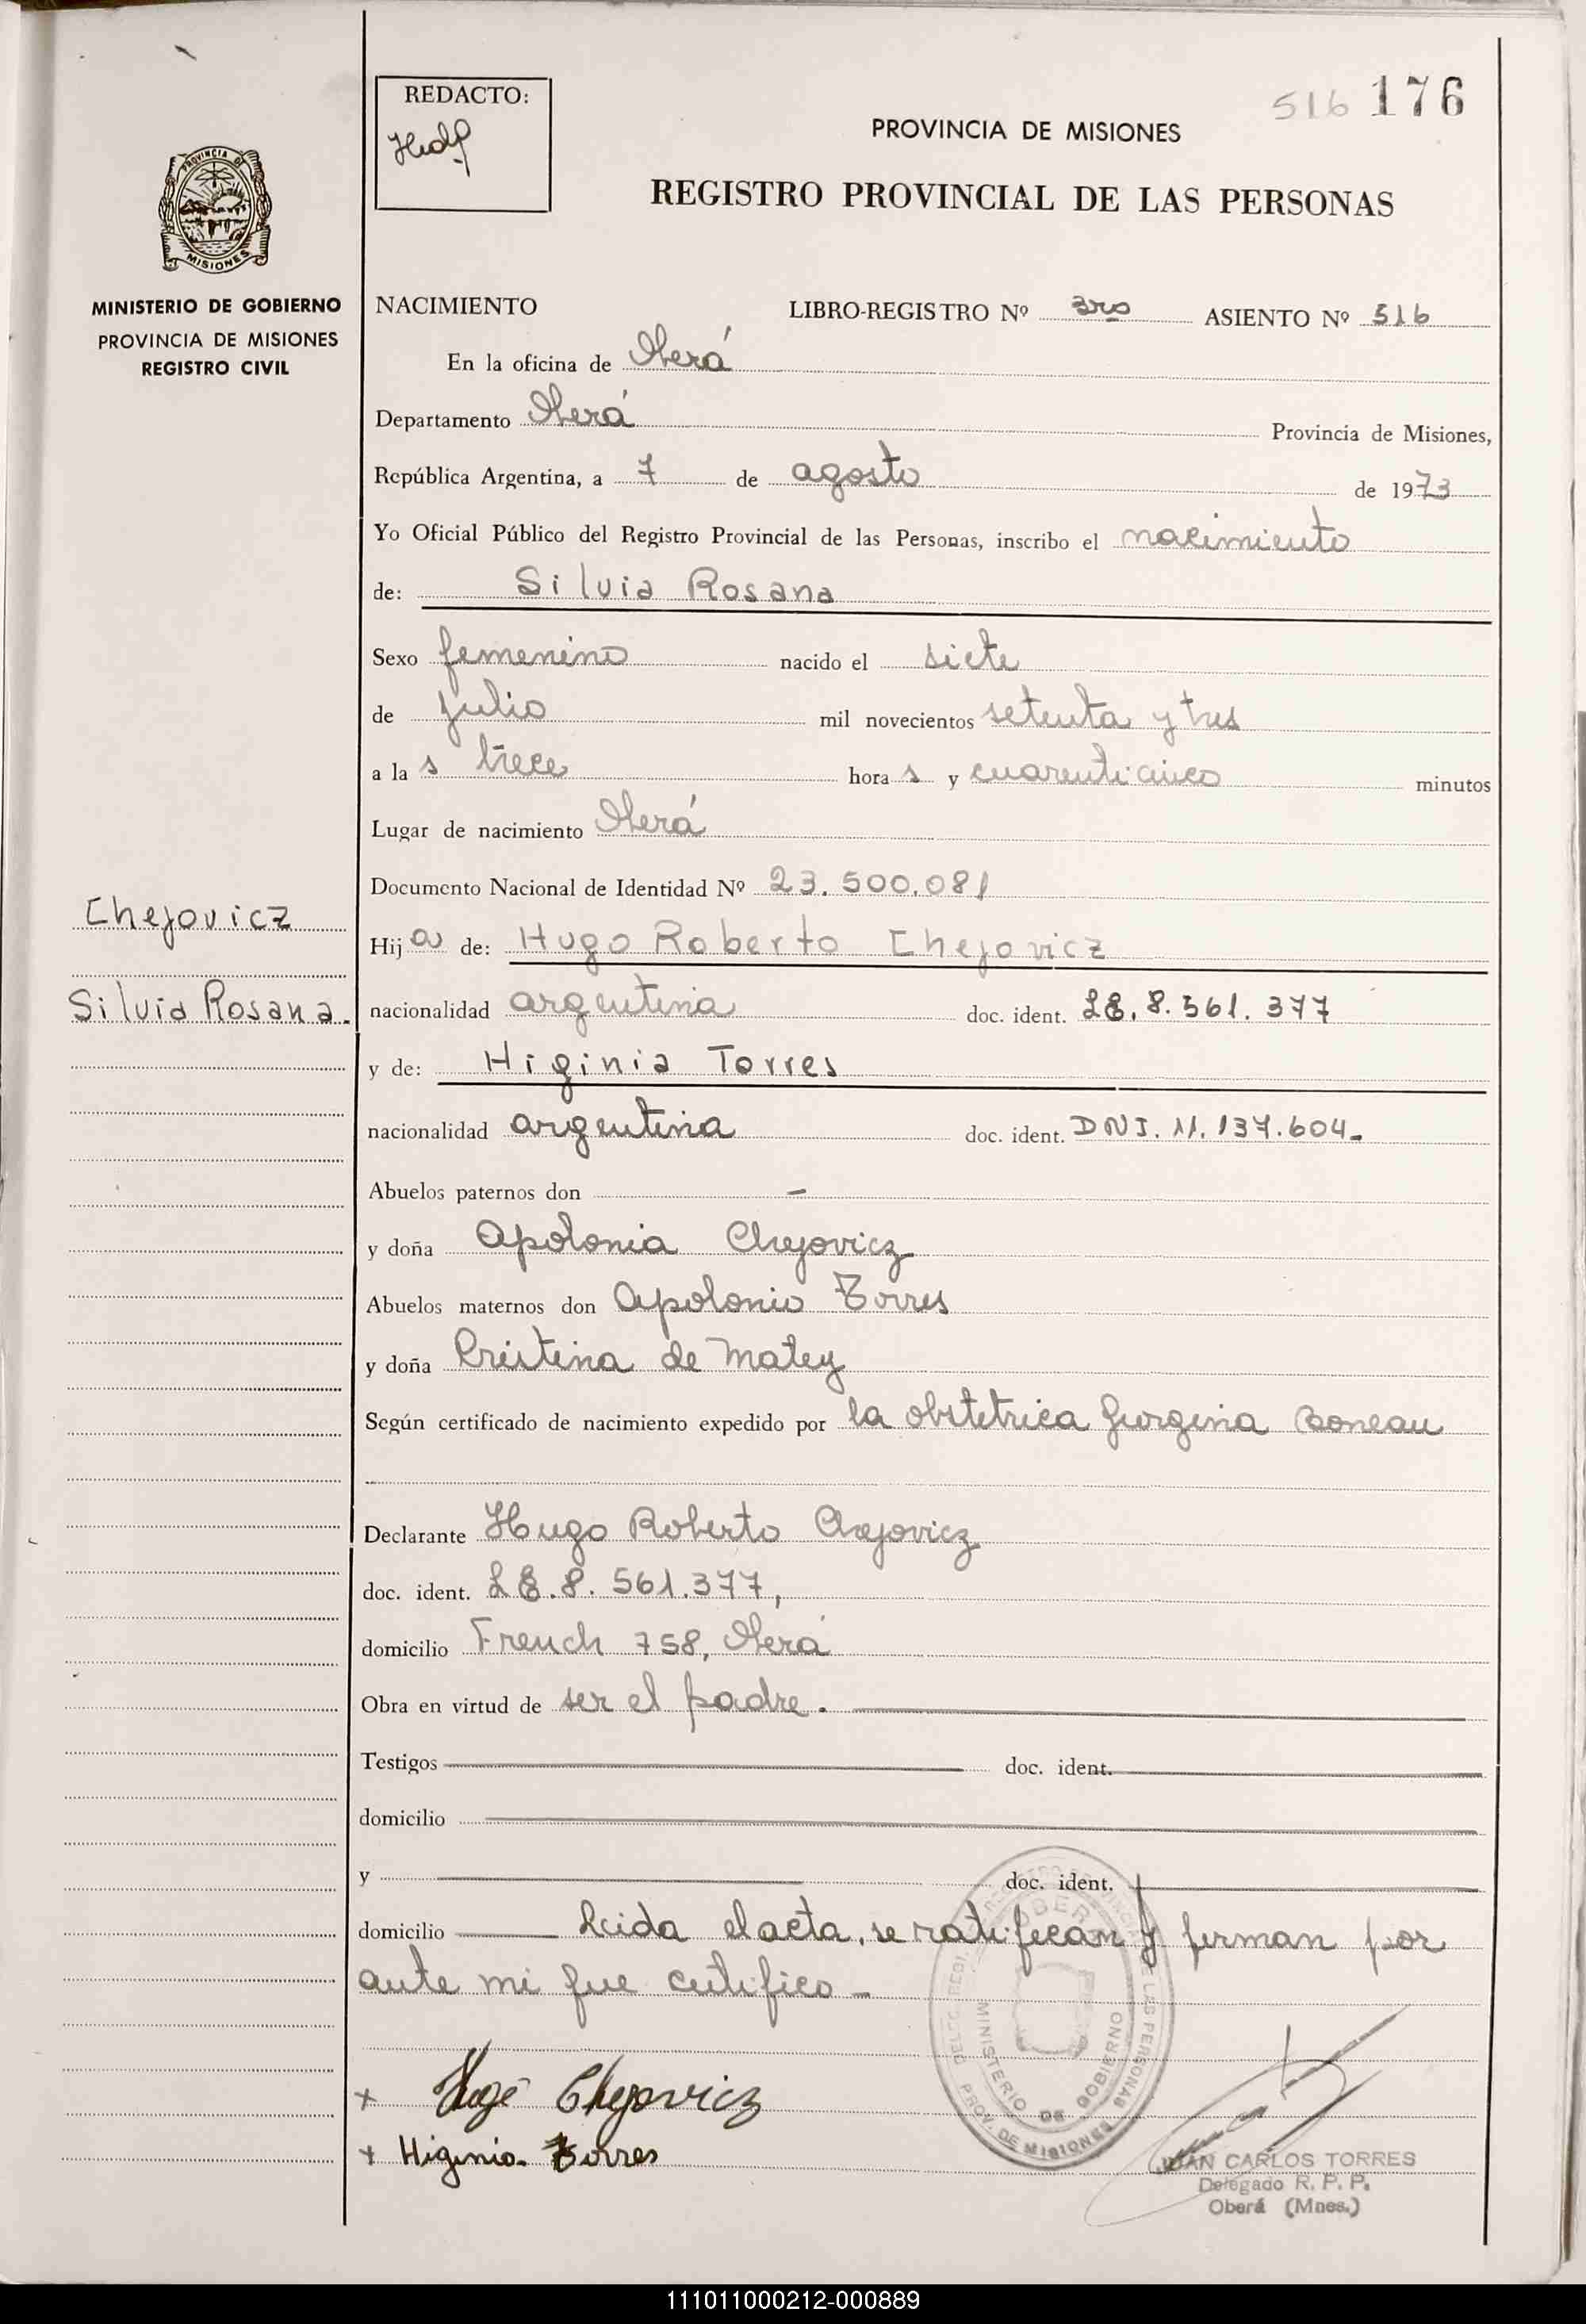 516 176
REDACTO:
PROVINCIA DE MISIONES
REGISTRO PROVINCIAL DE LAS PERSONAS
PROVINCIA DE
MISIONES
MINISTERIO DE GOBIERNO
PROVINCIA DE MISIONES
REGISTRO CIVIL
NACIMIENTO LIBRO-REGISTRO Nº 3ro ASIENTO Nº 516
En la oficina de Oberá
Departamento Oberá Provincia de Misiones,
República Argentina, a 7 de agosto de 1973
Yo Oficial Público del Registro Provincial de las Personas, inscribo el nacimiento
de: Silvia Rosana
Sexo femenino nacido el siete
de julio mil novecientos setenta y tres
a la s trece hora s y cuarenticinco minutos
Lugar de nacimiento Oberá
Documento Nacional de Identidad Nº 23.500.081
Chejovicz
Hij a de: Hugo Roberto Chejovicz
Silvia Rosana.
nacionalidad argentina doc. ident. LE. 8.561.377
y de: Higinia Torres
nacionalidad argentina doc. ident. DNI. 11.137.604.-
Abuelos paternos don -
y doña Apolonia Chejovicz
Abuelos maternos don Apolonio Torres
y doña Cristina de Matey
Según certificado de nacimiento expedido por la obstetrica Jurgina Boneau
Declarante Hugo Roberto Chejovicz
doc. ident. LE.8.561.377,
domicilio French 758, Oberá
Obra en virtud de ser el padre.
Testigos doc. ident.
domicilio
y doc. ident.
domicilio Leida el acta, se ratifican y firman por
ante mi que certifico -
+ Hugo Chejovicz
+ Higinia Torres
DELEG. REGI. PROV. DE MISIONES DE LAS PERSONAS
MINISTERIO DE GOBIERNO
JUAN CARLOS TORRES
Delegado R. P. P.
Oberá (Mnes.)
111011000212-000889